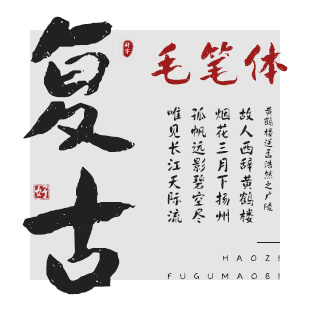 复古
毛笔体
黄鹤楼送孟浩然之广陵
故人西辞黄鹤楼
烟花三月下扬州
孤帆远影碧空尽
唯见长江天际流
HAOZI
FUGUMAOBI